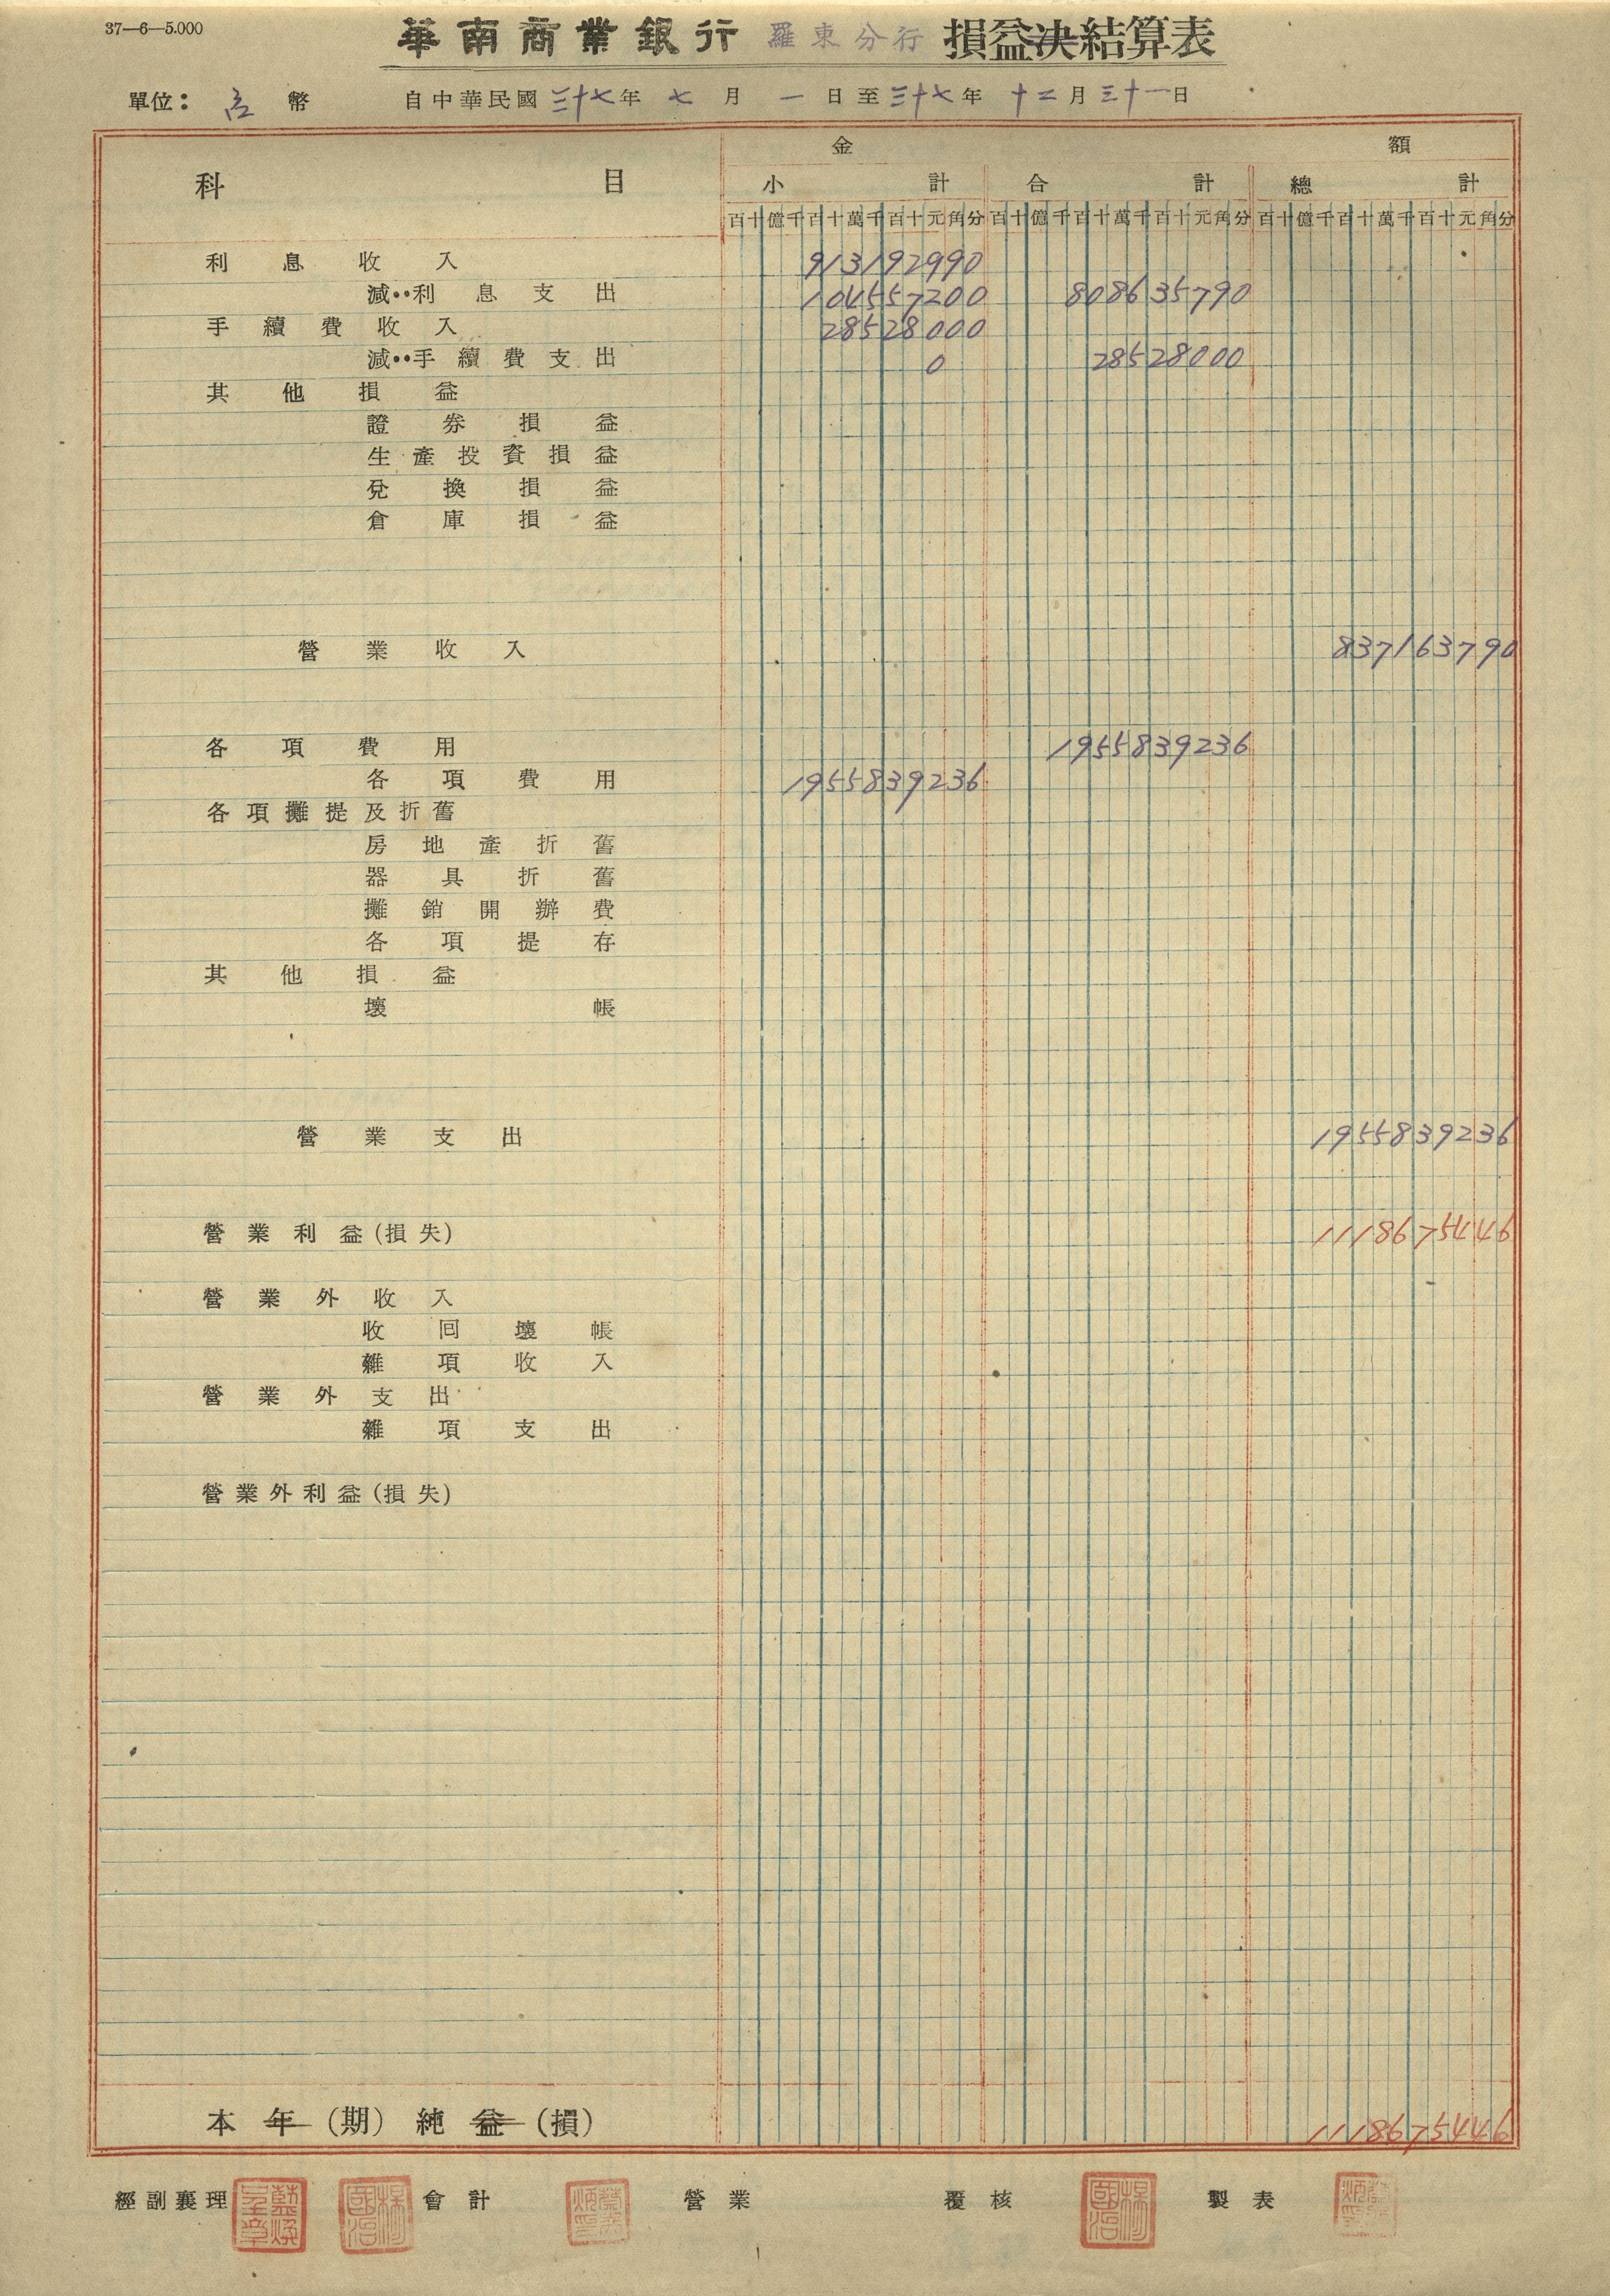 37—6—5.000
華南商業銀行 羅東分行 損益決結算表
單位：台幣 自中華民國三十七年七月一日至三十七年十二月三十一日
金額
科目 小計 合計 總計
百十億千百十萬千百十元角分 百十億千百十萬千百十元角分 百十億千百十萬千百十元角分
利息收入 913192990
減：利息支出 104557200 808635790
手續費收入 28528000
減：手續費支出 0 28528000
其他損益
證券損益
生產投資損益
兌換損益
倉庫損益
營業收入 837163790
各項費用 1955839236
各項費用 1955839236
各項攤提及折舊
房地產折舊
器具折舊
攤銷開辦費
各項提存
其他損益
壞帳
營業支出 1955839236
營業利益(損失) 1118675446
營業外收入
收回壞帳
雜項收入
營業外支出
雜項支出
營業外利益(損失)
本年(期)純益(損) 1118675446
經副襄理 會計 營業 覆核 製表